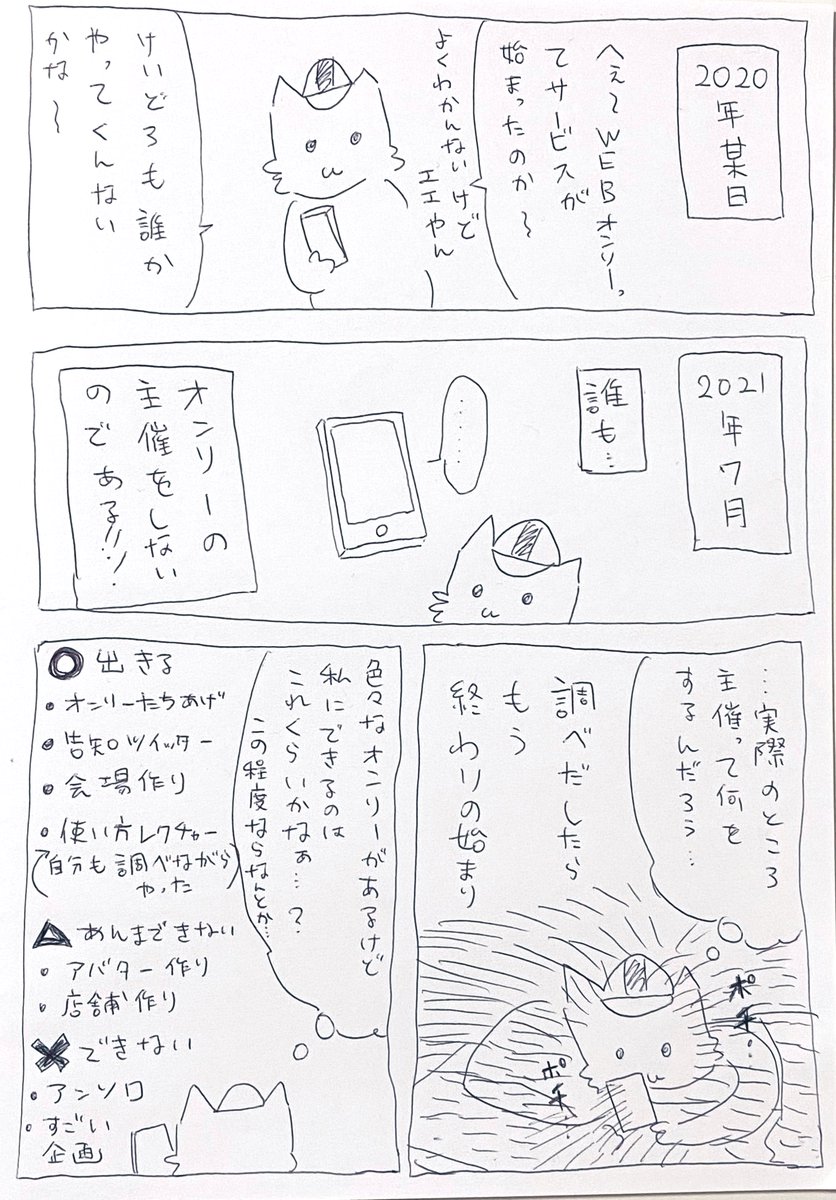 2020年某日
へぇ〜WEBオンリーっ
てサービスが
始まったのか〜
よくわかんないけど
エエやん
けいどろも誰か
やってくんない
かな〜
2021年7月
誰も…
……
オンリーの
主催をしない
のである!!!
…実際のところ
主催って何を
するんだろう…
調べだしたら
もう
終わりの始まり
ポチ…
ポチ…
色々なオンリーがあるけど
私にできるのは
これくらいかなぁ…?
この程度ならなんとか…
◯出きる
・オンリーたちあげ
・告知○ツイッター
・会場作り
・使い方レクチャー
(自分も調べながら
やった)
△あんまできない
・アバター作り
・店舗作り
✕できない
・アンソロ
・すごい
企画